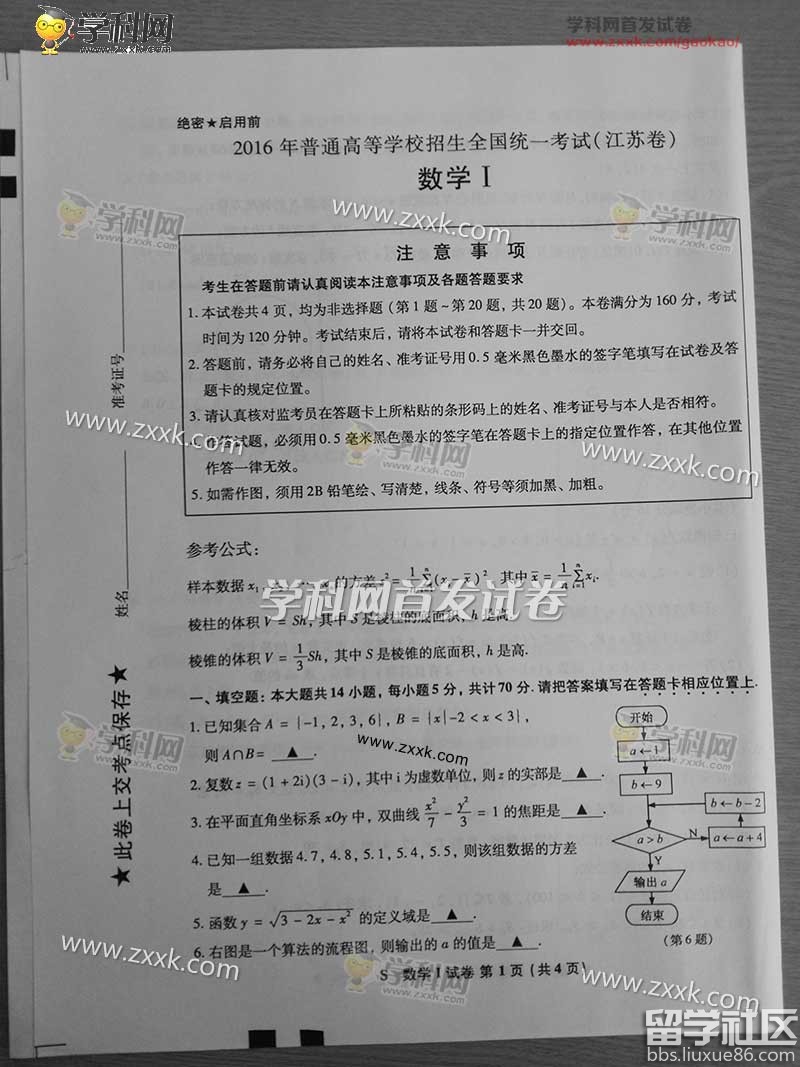 学科网
学科网首发试卷
www.zxxk.com/gaokao/
绝密★启用前
2016年普通高等学校招生全国统一考试(江苏卷)
数学Ⅰ
学科网
www.zxxk.com
学科网
注意事项
考生在答题前请认真阅读本注意事项及各题答题要求
1.本试卷共4页,均为非选择题(第1题~第20题,共20题)。本卷满分为160分,考试
时间为120分钟。考试结束后,请将本试卷和答题卡一并交回。
2.答题前,请务必将自己的姓名、准考证号用0.5毫米黑色墨水的签字笔填写在试卷及答
题卡的规定位置。
3.请认真核对监考员在答题卡上所粘贴的条形码上的姓名、准考证号与本人是否相符。
作答试题,必须用0.5毫米黑色墨水的签字笔在答题卡上的指定位置作答,在其他位置
作答一律无效。
5.如需作图,须用2B铅笔绘、写清楚,线条、符号等须加黑、加粗。
www.zxxk.com
学科网
www.zxxk.com
准考证号
姓名
★此卷上交考点保存★
参考公式:
样本数据x₁, …, xₙ的方差s²=1/n∑(xᵢ-x̄)²,其中x̄=1/n∑xᵢ.
学科网首发试卷
棱柱的体积V=Sh,其中S是棱柱的底面积,h是高.
棱锥的体积V=1/3Sh,其中S是棱锥的底面积,h是高.
一、填空题:本大题共14小题,每小题5分,共计70分.请把答案填写在答题卡相应位置上.
1.已知集合A={-1,2,3,6},B={x|-2<x<3},
则A∩B=▲.
www.zxxk.com
2.复数z=(1+2i)(3-i),其中i为虚数单位,则z的实部是▲.
3.在平面直角坐标系xOy中,双曲线x²/7-y²/3=1的焦距是▲.
4.已知一组数据4.7,4.8,5.1,5.4,5.5,则该组数据的方差
是▲.
5.函数y=√(3-2x-x²)的定义域是▲.
6.右图是一个算法的流程图,则输出的a的值是▲.
开始
a←1
b←9
b←b-2
a>b
N
a←a+4
Y
输出a
结束
(第6题)
学科网
www.zxxk.com
S 数学Ⅰ试卷 第1页(共4页)
学科网
www.zxxk.com
留学社区
bbs.liuxue86.com